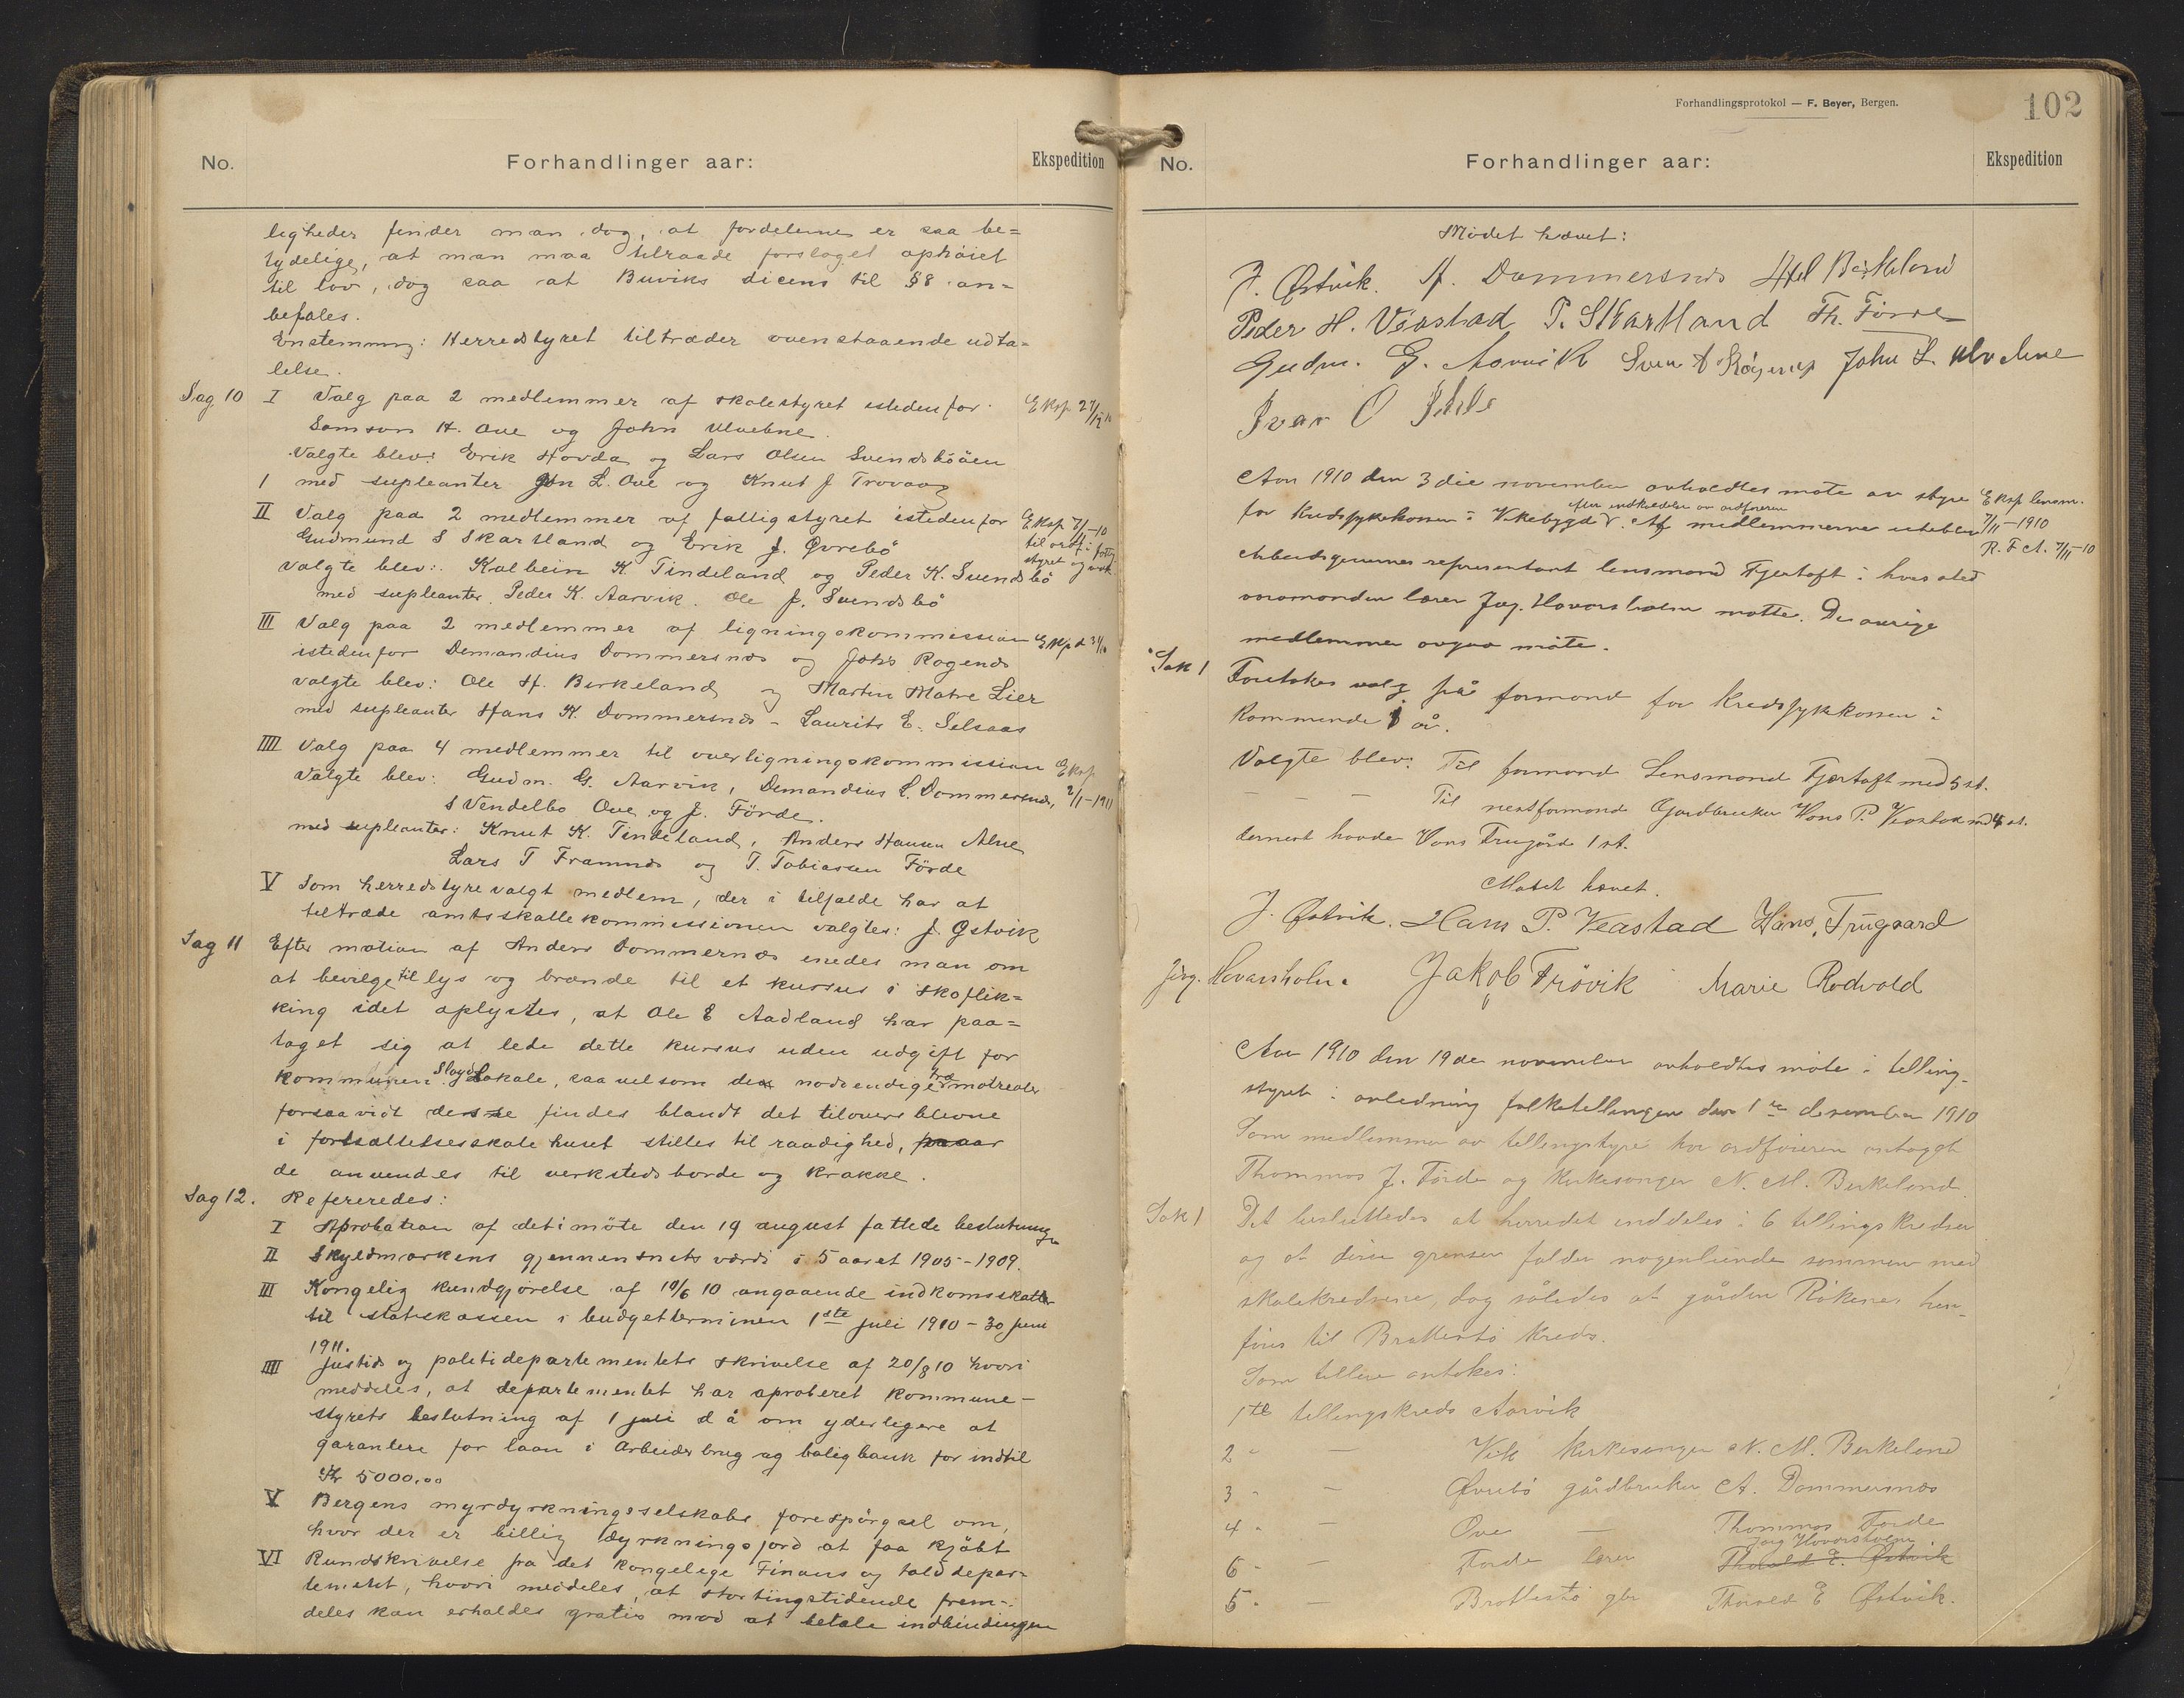 No.
Forhandlinger aar:
Ekspedition
ligheder finder man dog, at fordelene er saa be=
tydelige, at man maa tilraade forslaget ophöiet
til lov, dog saa at Buviks dicens til §8 an=
befales.
Enstemmig: Herredstyret tiltræder ovenstaaende udta=
lelse.
Sag 10 I Valg paa 2 medlemmer af skolestyret istedenfor
Samson H. Ove og John Ulvebne.
Valgte blev: Erik Hovda og Lars Olsen Svendsböåen
1 med supleanter Jon L. Ove og Knut J Trovaag
II Valg paa 2 medlemmer af fattigstyret istedenfor Eksp 7/11-10
Gudmund S Skartland og Erik J. Øvrebö til ordf i fattig
styret og
valgte blev: Kolbein K Tindeland og Peder K. Svendsbö
med supleanter Peder K. Aarvik. Ole J. Svendsbö
III Valg paa 2 medlemmer af ligningskommission
istedenfor Demandius Dommersnæs og Johs Rogenæs
valgte blev: Ole H. Birkeland og Martin Matre Lier
med supleanter Hans K. Dommersnæs - Laurits E. Selsaas
IIII Valg paa 4 medlemmer til overligningskommission Eksp
2/1-1911
Valgte blev: Gudm. G. Aarvik, Demandius L. Dommersnæs,
S Vendelbo Ove og J. Förde.
med supleanter: Knut K. Tindeland, Anders Hansen Alne
Lars T Framnæs og T. Tobiassen Förde
V Som herredstyrevalgt medlem, der i tilfælde har at
tiltræde amtsskattekommissionen valgtes: J. Østvik
Sag 11 Efter motion af Anders Dommernæs enedes man om
at bevilge til lys og brænde til et kursus i skoflik=
king idet oplystes, at Ole E Aadland har paa=
taget sig at lede dette kursus uden udgift for
kommunen. Slöyd Lokale, saavelsom de nödvendige træmatrealer
forsaavidt disse findes blandt det tiloversblevne
i fortsættelsesskolehuset stilles til raadighed,
de anvendes til verkstedsborde og krakke.
Sag 12. Refereredes:
I Aprobation af det i möte den 19 august fattede beslutninger
II Skyldmarkens gjennemsnits værdi i 5 aaret 1905-1909.
III Kongelig kundgjörelse af 10/6 10 angaaende indkomsskatter
til statskassen i budgetterminen 1ste juli 1910 - 30 juni
1911.
IIII Justids og politidepartementets skrivelse af 20/8 10 hvori
meddeles, at departementet har aproberet kommune-
styrets beslutning af 1 juli d å om yderligere at
garantere for laan i Arbeider brug og boligbank for indtil
Kr 5000.00
V Bergens myrdyrkningsselskabs forespörgsel om,
hvor der er billig dyrkningsjord at faa kjöbt
VI Rundskrivelse fra det kongelige Finans og tolddepar-
tementet, hvori meddeles, at stortingstidende frem-
deles kan erholdes gratis mod at betale indbindingen
Forhandlingsprotokol — F. Beyer, Bergen.
102
No.
Forhandlinger aar:
Ekspedition
Mödet hævet:
J. Østvik. A. Dommersnæs Birkeland
Peder H. Vöastad P. Skartland Th. Förde
Gudm. G. Aarvik Svein John L. Ulvebne
Ivar O
Aar 1910 den 3die november avholdtes möte av styre Eksp lensm.
7/11-1910
for kredssykekassen i Vikebygd efter indkaldelse av ordföreren. Af medlemmerne uteblev R. F A. 7/11-10
Arbeidsgivernes representant lensmand Fjertoft i hvis sted
varamanden lærer Jørg. Hovarsholm mötte. De övrige
medlemmer avgav möte.
Sak 1 Foretokes valg på formand for kredssykekassen i
kommende 1 år.
Valgte blev: Til formand Lensmand Fjertoft med 5 st.
— — — Til nestformand Gardbruker Hans P. Veastad med 4 st.
dernest havde Hans Trugård 1 st.
Mötet hævet.
J. Østvik. Hans P. Veastad Hans. Trugaard
Jörg. Hovarsholm. Jakob Trövik Marie Rodvold
Aar 1910 den 19de november avholdtes möte i telling-
styret i anledning folketellingen den 1ste desember 1910
Som medlemmer av tellingstyre har ordföreren antaget
Thommas J. Förde og kirkesanger N. M. Birkeland
Sak 1 Det besluttedes at herredet inddeles i 6 tellingskredser
og at disse grenser falder nogenlunde sammen med
skolekredsene, dog således at gården Rökenes hen-
föres til Brattestö kreds.
Som tellere antokes:
1ste tellingskreds Aarvik
2 - — Vik kirkesanger N. M. Birkeland
3 - — Øvrebö gårdbruker A. Dommersnes
4 - — Ove — Thommas Förde
6 - — Förde lærer Thorvald E. Østvik Jørg Hovarsholm
5 - — Brattestö gbr Thorvald E Østvik.